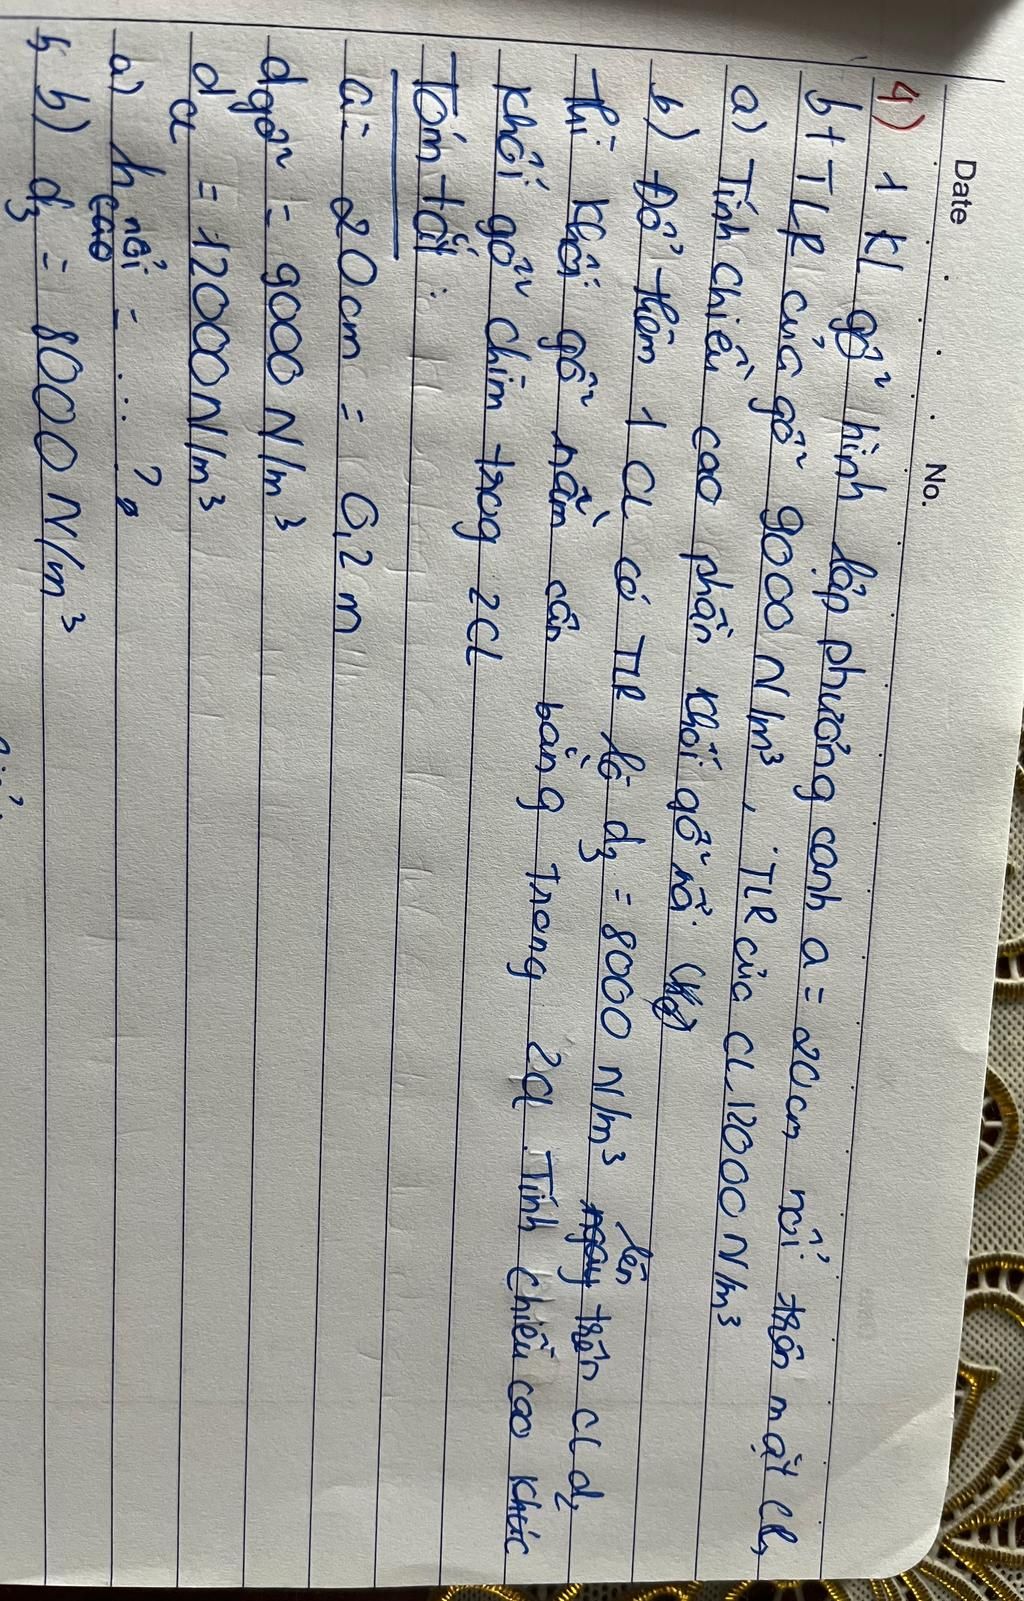 Date
No.
4) 1 KL gỗ hình lập phương cạnh a = 20cm nổi trên mặt CL,
b+ TLR của gỗ 9000 N/m³, TLR của CL 12000 N/m³
a) Tính chiều cao phần khối gỗ nổi
b) Đổ thêm 1 CL có TLR là d₃ = 8000 N/m³ lên trên CL d₂
thì khối gỗ nằm cân bằng trong 2CL. Tính chiều cao khúc
khối gỗ chìm trog 2CL
Tóm tắt:
a = 20cm = 0,2 m
dgỗ = 9000 N/m³
dCL = 12000 N/m³
a) h nổi = ...?
b) d₃ = 8000 N/m³